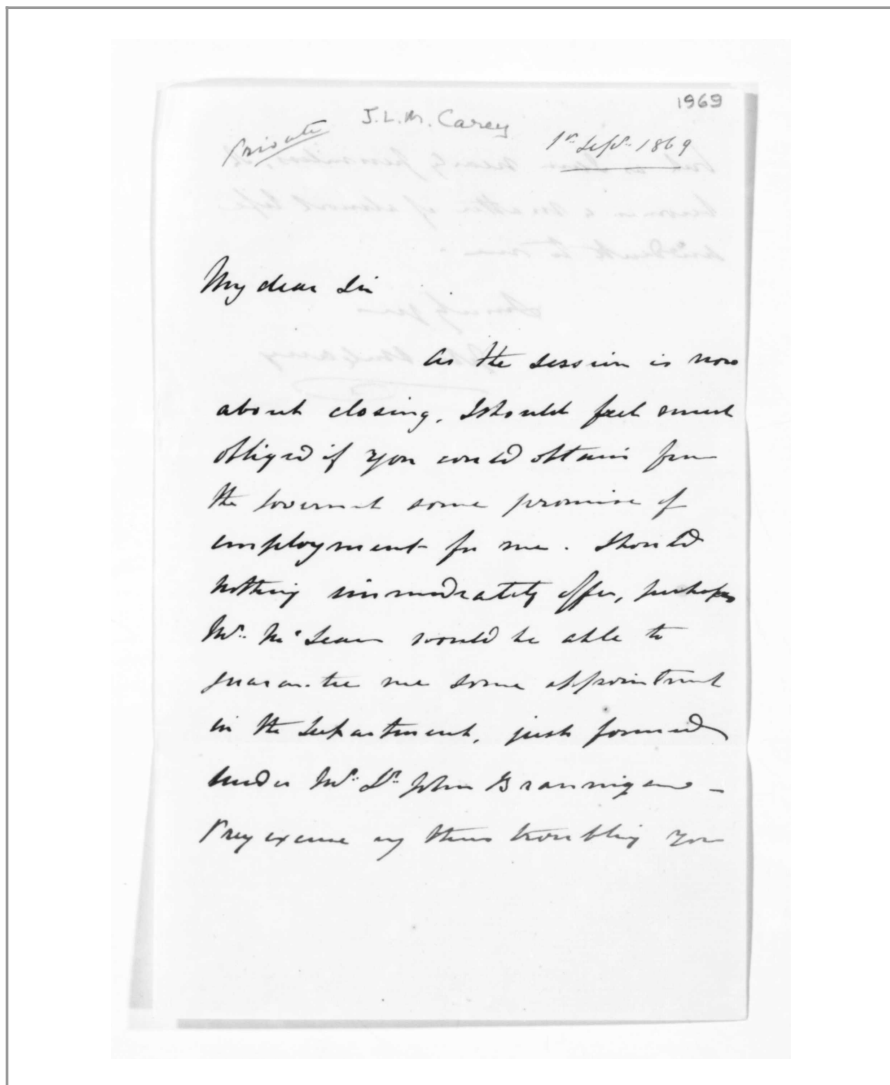 1969
J.L.M. Carey
Private
1st Septr. 1869
My dear Sir
As the Session is now
about closing, I should feel much
obliged if you could obtain from
the Govermt some promise of
employment for me. Should
nothing immediately offer, perhaps
Mr. McLean would be able to
guarantee me some appointment
in the Department, just formed
under Mr. St. John Brannigan –
Pray excuse my thus troubling you